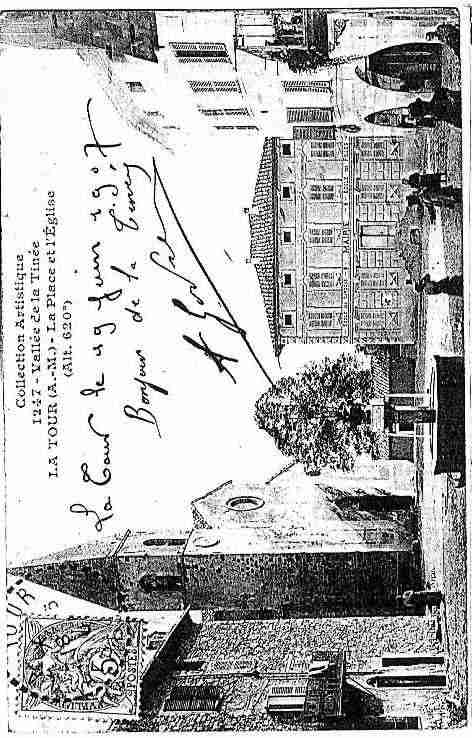 Collection Artistique
1247 - Vallée de la Tinée
LA TOUR (A.-M.) - La Place et l'Église
(Alt. 620m)
La Tour le 29 Juin 1907
Bonjour de la
A
MAIRIE
OUR
5
POSTES